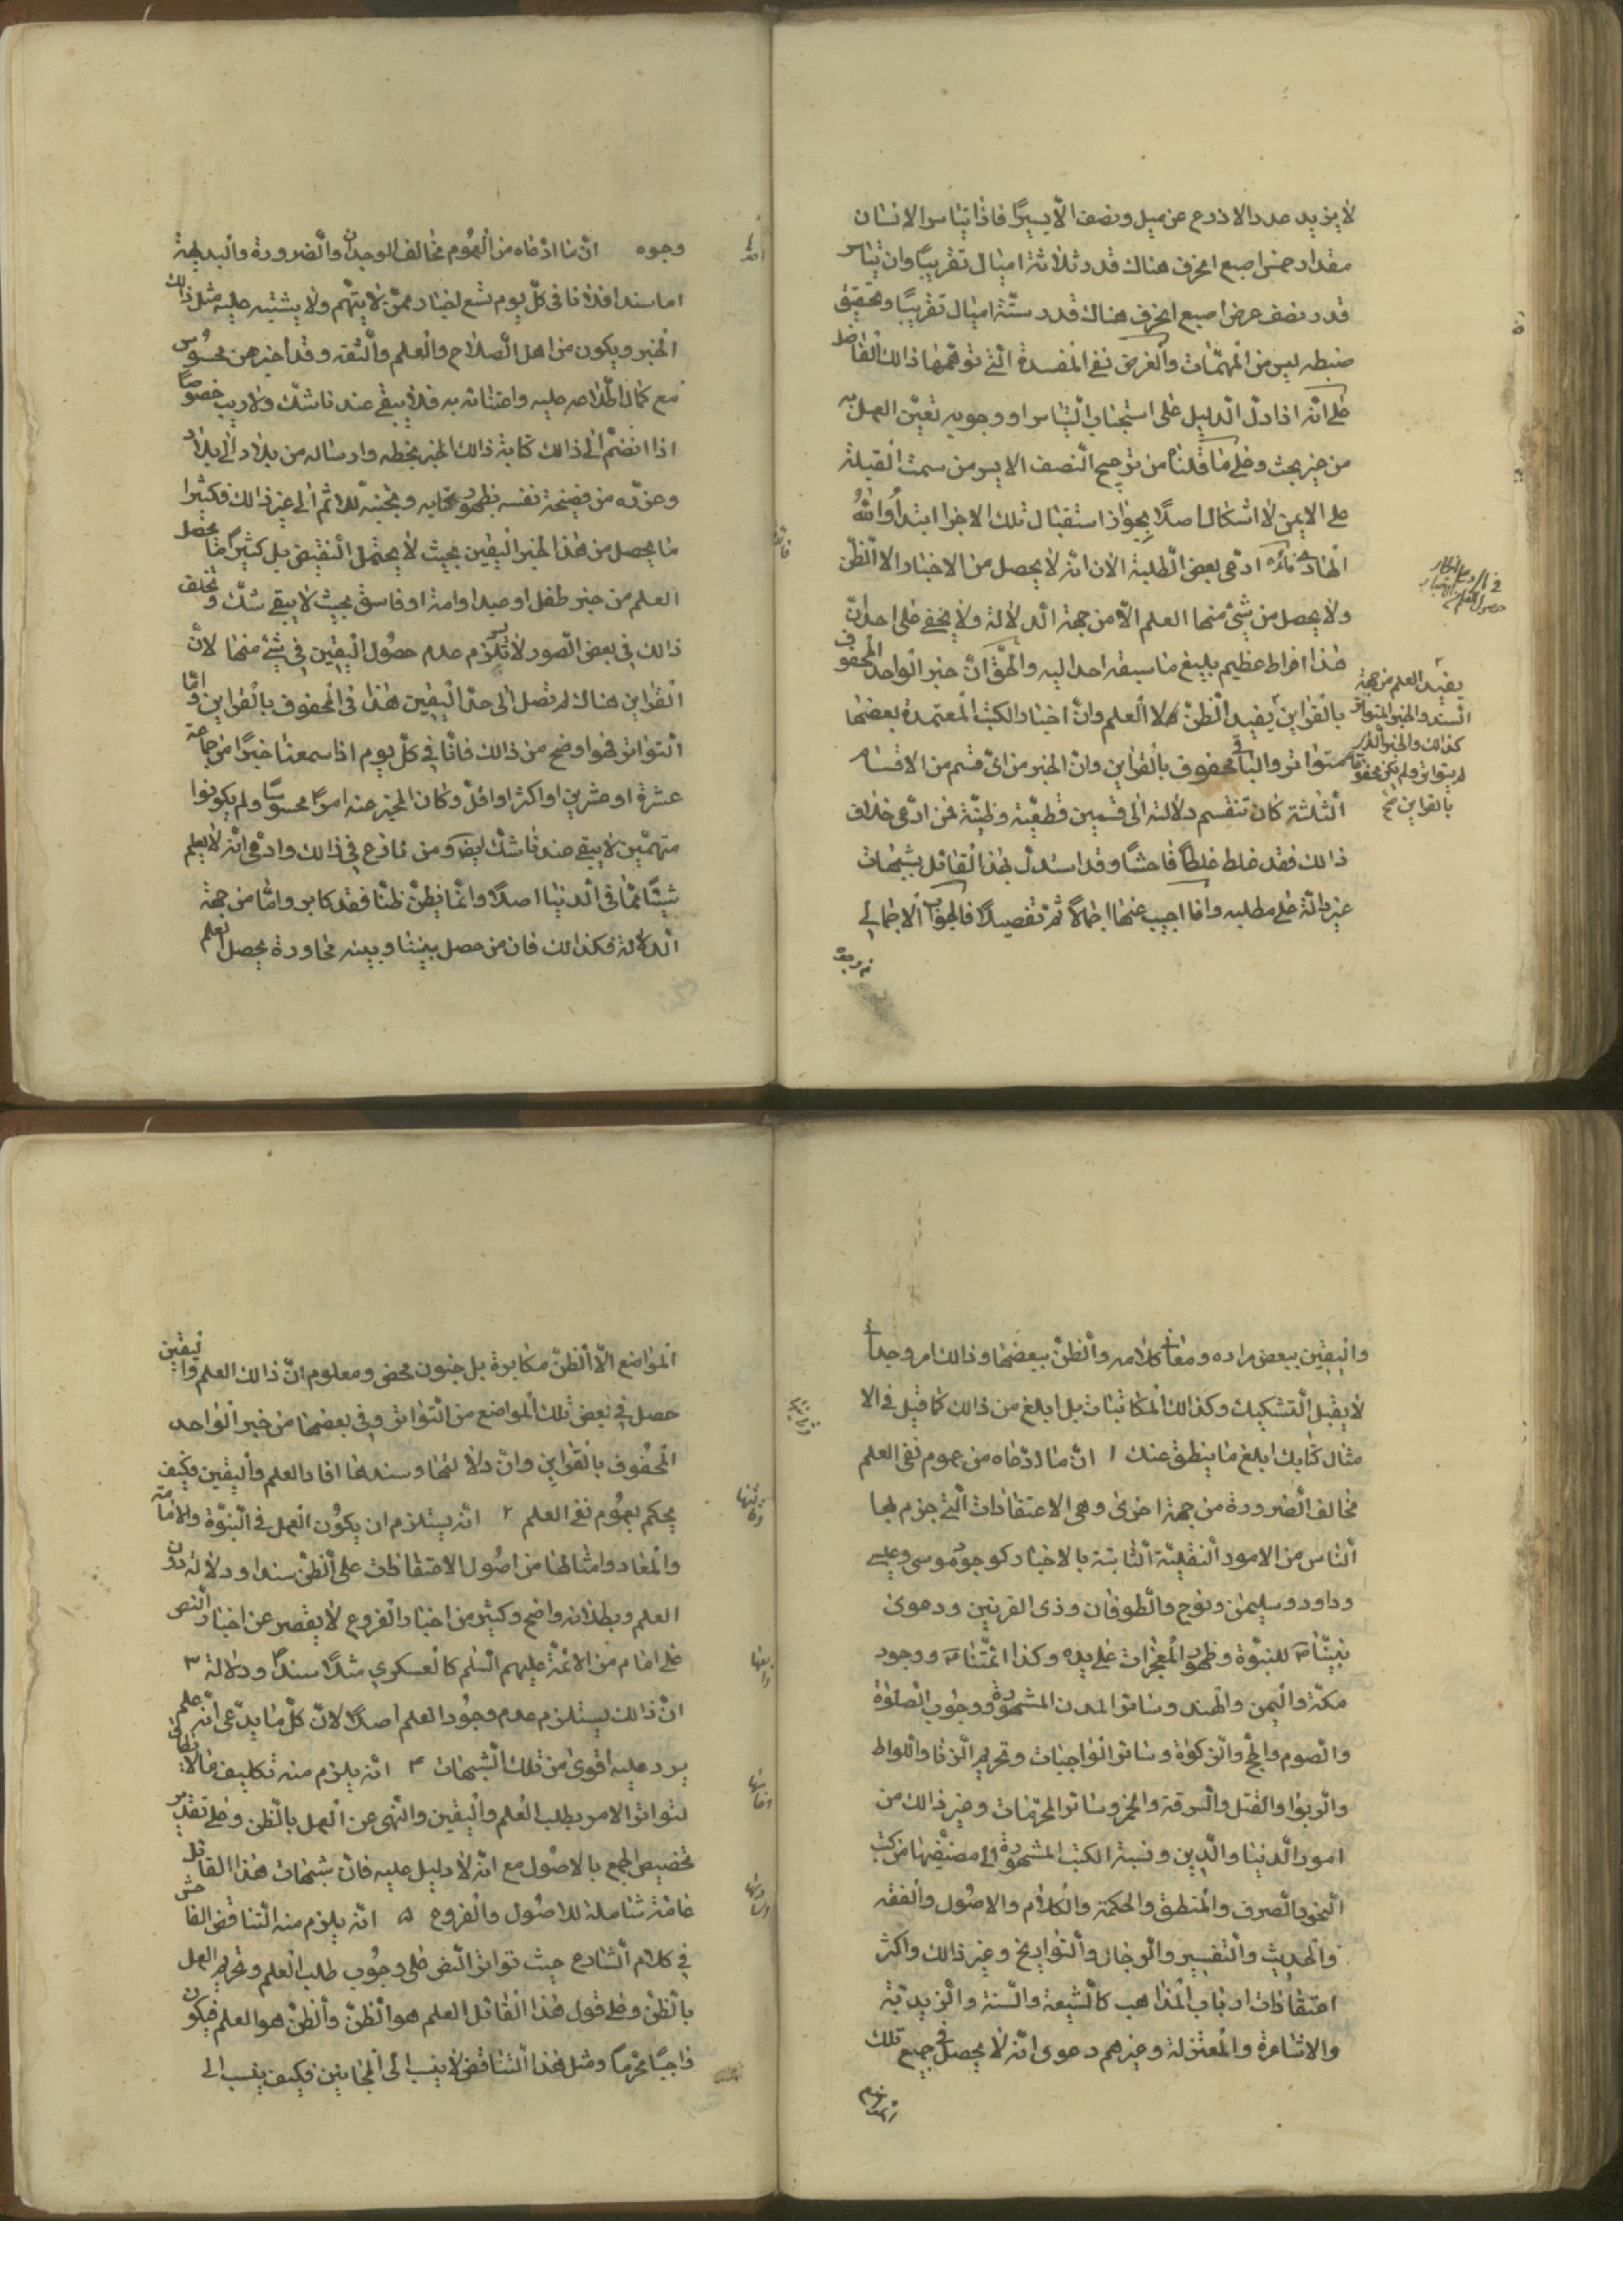 لا يزيد عدد الاذرع عن ميل ونصف الّا يسيرًا فاذا تياسر الانسان
مقدار خمس اصبع انحرف هناك قدر ثلاثة اميال تقريبًا وان تياسر
قدر نصف عرض اصبع انحرف هناك قدر ستّة اميال تقريبًا وتحقيق
ضبطه ليس من المهمّات والغرض نفى المفسدة الّتى توهّمها ذلك الفاضل
على انّه اذا دلّ الدليل على استحباب التياسر او وجوبه تعيّن العمل به
من غير بحث وعلى ما قلناه من ترجيح النصف الايسر من سمت القبلة
على الايمن لا اشكال اصلًا بجواز استقبال تلك الاجزا ابتداءً والله
الهادى فائدة ادّعى بعض الطلبة الان انّه لا يحصل من الاخبار الا الظنّ
ولا يحصل من شئ منها العلم الّا من جهة الدلالة ولا يخفى على احد انّ
هذا افراط عظيم بليغ ما سبقه احد اليه والحقّ انّ خبر الواحد المحفوف
بالقراين يفيد الظنّ لا العلم وانّ اخبار الكتب المعتمدة بعضها
متواتر والباقى محفوف بالقراين وانّ الخبر من اىّ قسم من الاقسام
الثلثة كان تنقسم دلالته الى قسمين قطعيّة وظنيّة فمن ادّعى خلاف
ذلك فقد غلط غلطًا فاحشًا وقد استدلّ هذا القائل بشبهات
غير دالّة على مطلبه وانا اجيب عنها اجمالًا ثمّ تفصيلًا فالجواب الاجمالى
يفيد العلم من جهة
السند والخبر المتواتر
كذلك والخبر الّذى
لم يتواتر ولم يكن محفوفا
بالقراين صح
وجوه انّ ما ادّعاه من العموم مخالف للوجدان والضرورة والبديهة
اما سندا فلانا فى كلّ يوم نسمع اخبار ممّن لا يتّهم ولا يشتبه عليه مثل ذلك
الخبر ويكون من اهل الصلاح والعلم والثقه وقد اخبر عن محسوس
مع كمال اطّلاعه عليه واعتنائه به فلا يبقى عندنا شك ولا ريب خصوصًا
اذا انضمّ الى ذلك كتابة ذلك الخبر بخطه وارساله من بلاد الى بلاد
وخوفه من فضيحة نفسه بظهور كتابه وتجنبه للاثم الى غير ذلك فكثيرا
ما يحصل من هذا الخبر اليقين بحيث لا يحتمل النقيض بل كثيرًا ما يحصل
العلم من خبر طفل او عبد او امة او فاسق بحيث لا يبقى شكّ وتخلف
ذلك فى بعض الصور لا يستلزم عدم حصول اليقين فى شئ منها لانّ
القراين هناك لم تصل الى حدّ اليقين هذا فى المحفوف بالقراين وامّا
التواتر فهو اوضح من ذلك فانّا فى كلّ يوم اذا سمعنا خبرًا من جماعة
عشرة او عشرين او اكثر او اقلّ وكان المخبر عنه امرًا محسوسًا ولم يكونوا
متهمّين لا يبقى عندنا شك ايضا ومن نازع فى ذلك وادّعى انّه لا يعلم
شيئًا ممّا فى الدنيا اصلًا وانّما يظنّ ظنًّا فقد كابر وامّا من جهة
الدلالة فكذلك فان من حصل بيننا وبينه محاورة يحصل العلم
واليقين ببعض مراده ومعانى كلامه والظنّ ببعضها وذلك امر وجدانى
لا يقبل التشكيك وكذلك المكاتبات بل ابلغ من ذلك كما قيل فى الا
مثال كتابك ابلغ ما ينطق عنك ١ انّ ما ادّعاه من عموم نفى العلم
مخالف للضرورة من جهة اخرى وهى الاعتقادات الّتى جزم بها
الناس من الامور النقليّة الثابتة بالاخبار كوجود موسى وعيسى
وداود وسليمن ونوح والطوفان وذى القرنين ودعوى
نبيّنا للنبوّة وظهور المعجزات على يده وكذا ائمّتنا ووجود
مكّة واليمن والهند وسائر المدن المشهورة ووجوب الصلوة
والصوم والحج والزكوة وسائر الواجبات وتحريم الزنا واللواط
والربوا والقتل والسرقة والخمر وسائر المحرّمات وغير ذلك من
امور الدنيا والدين ونسبة الكتب المشهورة الى مصنّفيها من كتب
النحو والصرف والمنطق والحكمة والكلام والاصول والفقه
والحديث والتفسير والرجال والتواريخ وغير ذلك واكثر
اعتقادات ارباب المذاهب كالشيعة والسنة والزيديّة
والاشاعرة والمعتزلة وغيرهم دعوى انّه لا يحصل فى جميع تلك
المواضع الّا الظنّ مكابرة بل جنون محض ومعلوم انّ ذلك العلم واليقين
حصل فى بعض تلك المواضع من التواتر وفى بعضها من خبر الواحد
المحفوف بالقراين وانّ دلالتها وسندها افاد العلم واليقين فكيف
يحكم بعموم نفى العلم ٢ انّه يستلزم ان يكون العمل فى النبوّة والامامة
والمعاد وامثالها من اصول الاعتقادات على الظنّ سندا ودلالة دون
العلم وبطلانه واضح وكثير من اخبار الفروع لا يقصر عن اخبار النص
على امام من الائمّة عليهم السلم كالعسكرى مثلًا سندًا ودلالة ٣
انّ ذلك يستلزم عدم وجود العلم اصلًا لانّ كلّ ما يدّعى انّه علم
يرد عليه اقوى من تلك الشبهات ٤ انّه يلزم منه تكليف ما لا يطاق
لتواتر الامر بطلب العلم واليقين والنهى عن العمل بالظن وعلى تقدير
تخصيص الجمع بالاصول مع انّه لا دليل عليه فانّ شبهات هذا القائل
عامّة شاملة للاصول والفروع ٥ انّه يلزم منه التناقض الفاحش
فى كلام الشارع حيث تواتر النص على وجوب طلب العلم وتحريم العمل
بالظنّ وعلى قول هذا القائل العلم هو الظنّ والظنّ هو العلم فيكون
واجبًا محرّمًا ومثل هذا التناقض لا ينسب الى المجانين فكيف ينسب الى